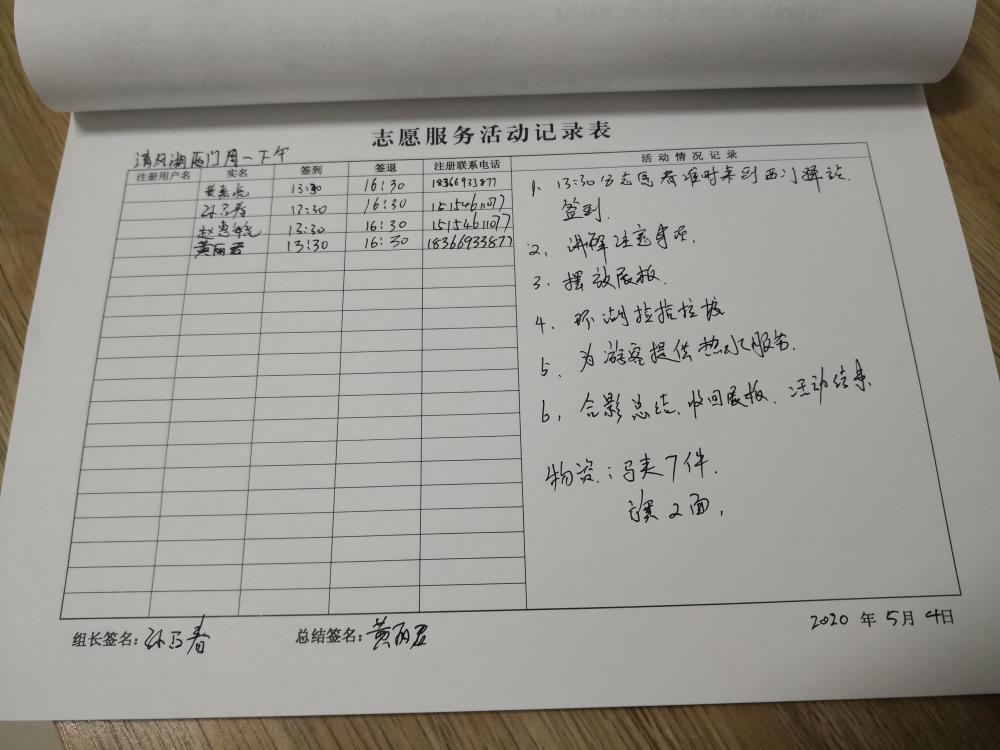 志愿服务活动记录表
清风湖西门周一下午
注册用户名 实名 签到 签退 注册联系电话 活动情况记录
13:30 16:30 18366933877
春 13:30 16:30 15154611077
赵 13:30 16:30 15154611077
黄丽君 13:30 16:30 18366933877
1、13:30分志愿者准时来到西门驿站
签到.
2、讲解注意事项.
3、摆放展板.
4、环湖捡拾垃圾
5、为游客提供热水服务.
6、合影总结、收回展板、活动结束.
物资:马夹7件.
旗2面,
组长签名: 春 总结签名:黄丽君
2020年5月4日